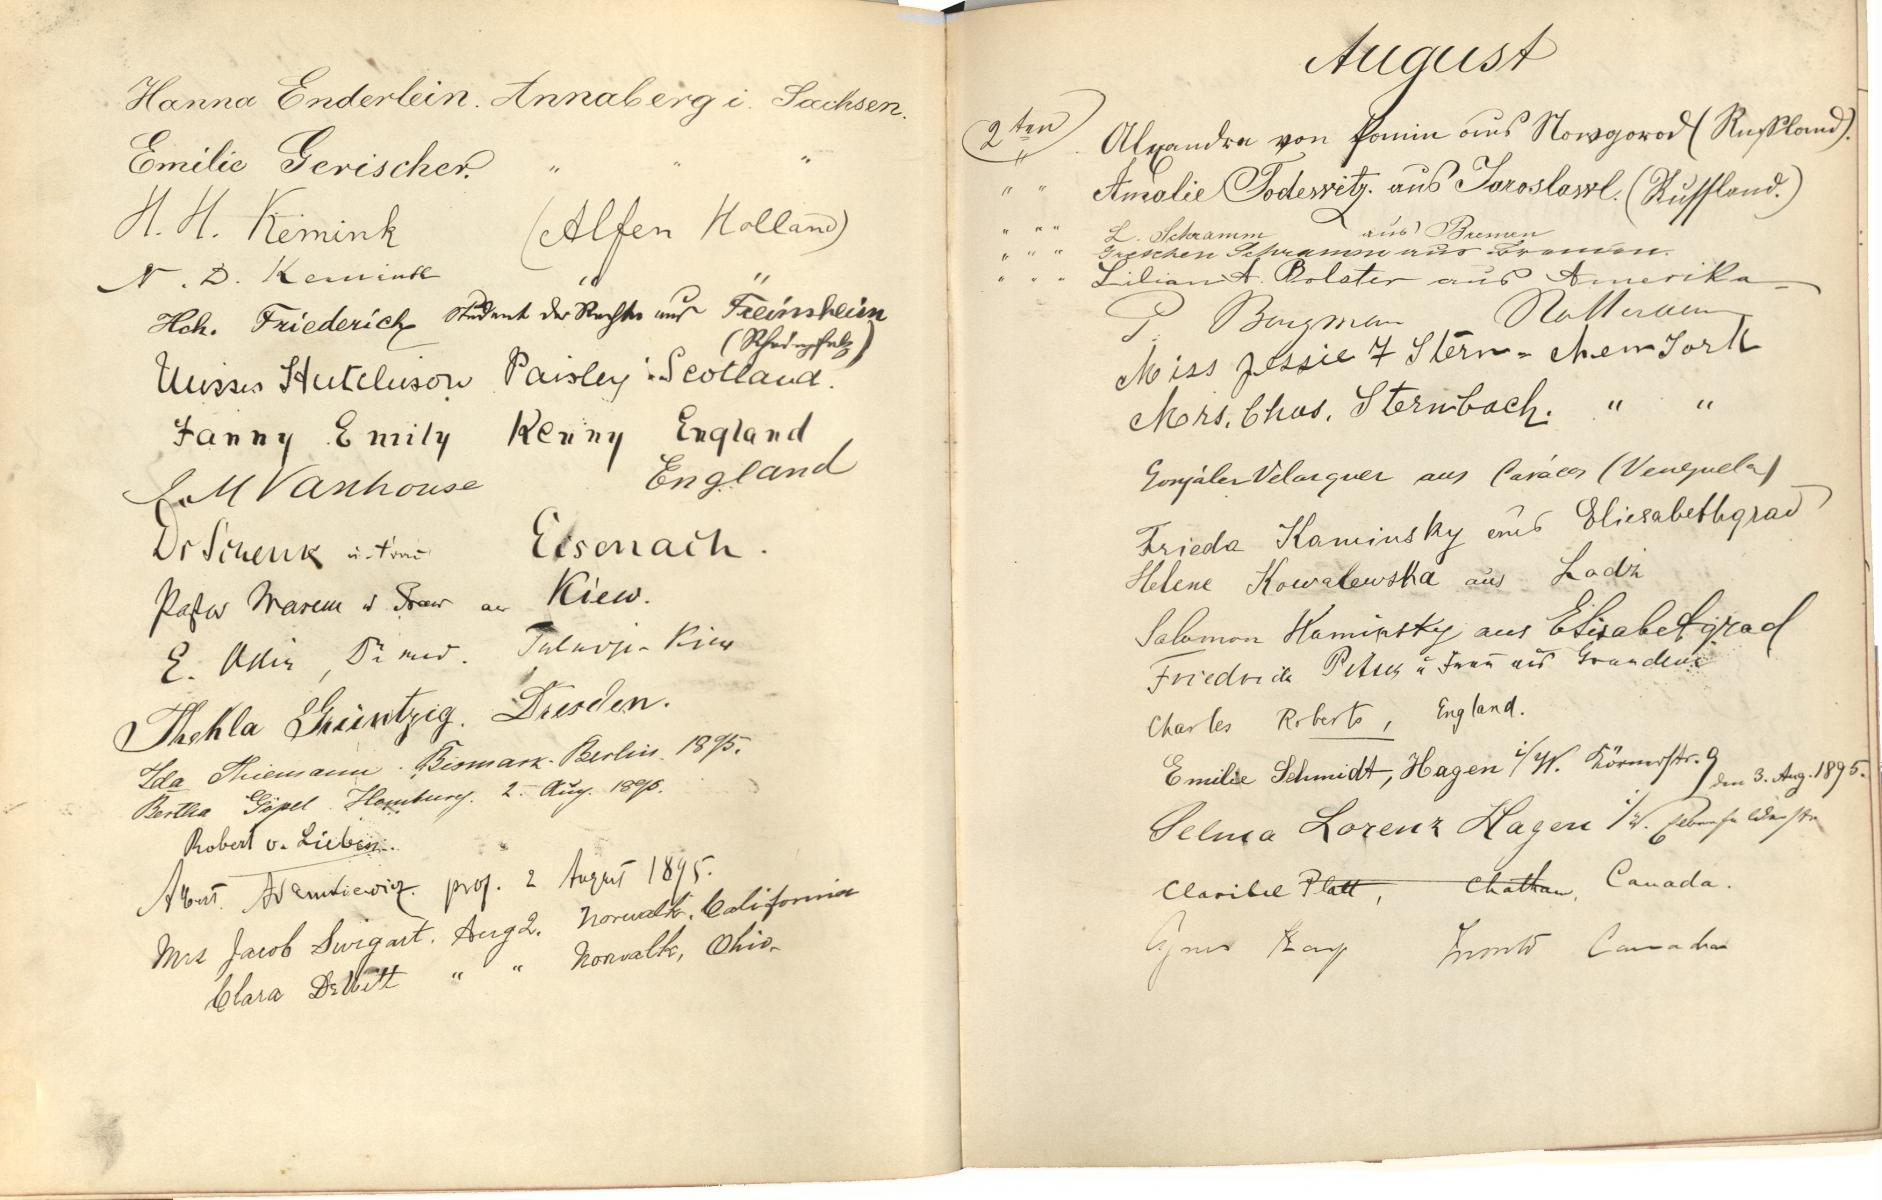 Hanna Enderlein. Annaberg i. Sachsen.
Emilie Gerischer. " " "
H. H. Kemink (Alfen Holland)
N. D. Kemink " "
Hch. Friederich Student der Rechte aus Freinsheim
(Rheinpfalz)
Misses Hutchison Paisley Scotland.
Fanny Emily Kenny England
M Vanhouse England
Dr Schenk u. Frau Eisenach.
Pastor u Frau aus Kiew.
E. Dr med. Kiew
Thekla Grüntzig. Dresden.
Ida Thiemann. Bismark. Berlin. 1895.
Bertha Göpel. Homburg. 2. Aug. 1895.
Robert v. Lieben.
Albert Adamkiewicz. prof. 2 August 1895.
Mrs Jacob Swigart. Aug 2. Norwalk, California
Clara DeWitt " " Norwalk, Ohio.
August
2ten " Alexandra von Fomin aus Nowgorod (Russland).
" " Amalie Todewitz. aus Jaroslawl. (Russland.)
" " " L. Schramm aus Bremen
" " " Gretchen Schramm aus Bremen.
" " " Lilian A. Bolster aus Amerika
P. Bergman Rotterdam
Miss Jessie F Stern - New York
Mrs. Chas. Sternbach. " "
González Velasquez aus Carácas (Venezuela)
Frieda Kaminsky aus Eliesabethgrad
Helene Kowalewska aus Lodz
Salomon Kaminsky aus Elisabetgrad
Friedrich u Frau aus Graudenz
Charles Roberts, England.
Emilie Schmidt, Hagen i/W. Körnerstr. 9 den 3. Aug. 1895.
Selma Lorenz Hagen i/W.
Claribel Platt, Chatham, Canada.
Toronto Canada